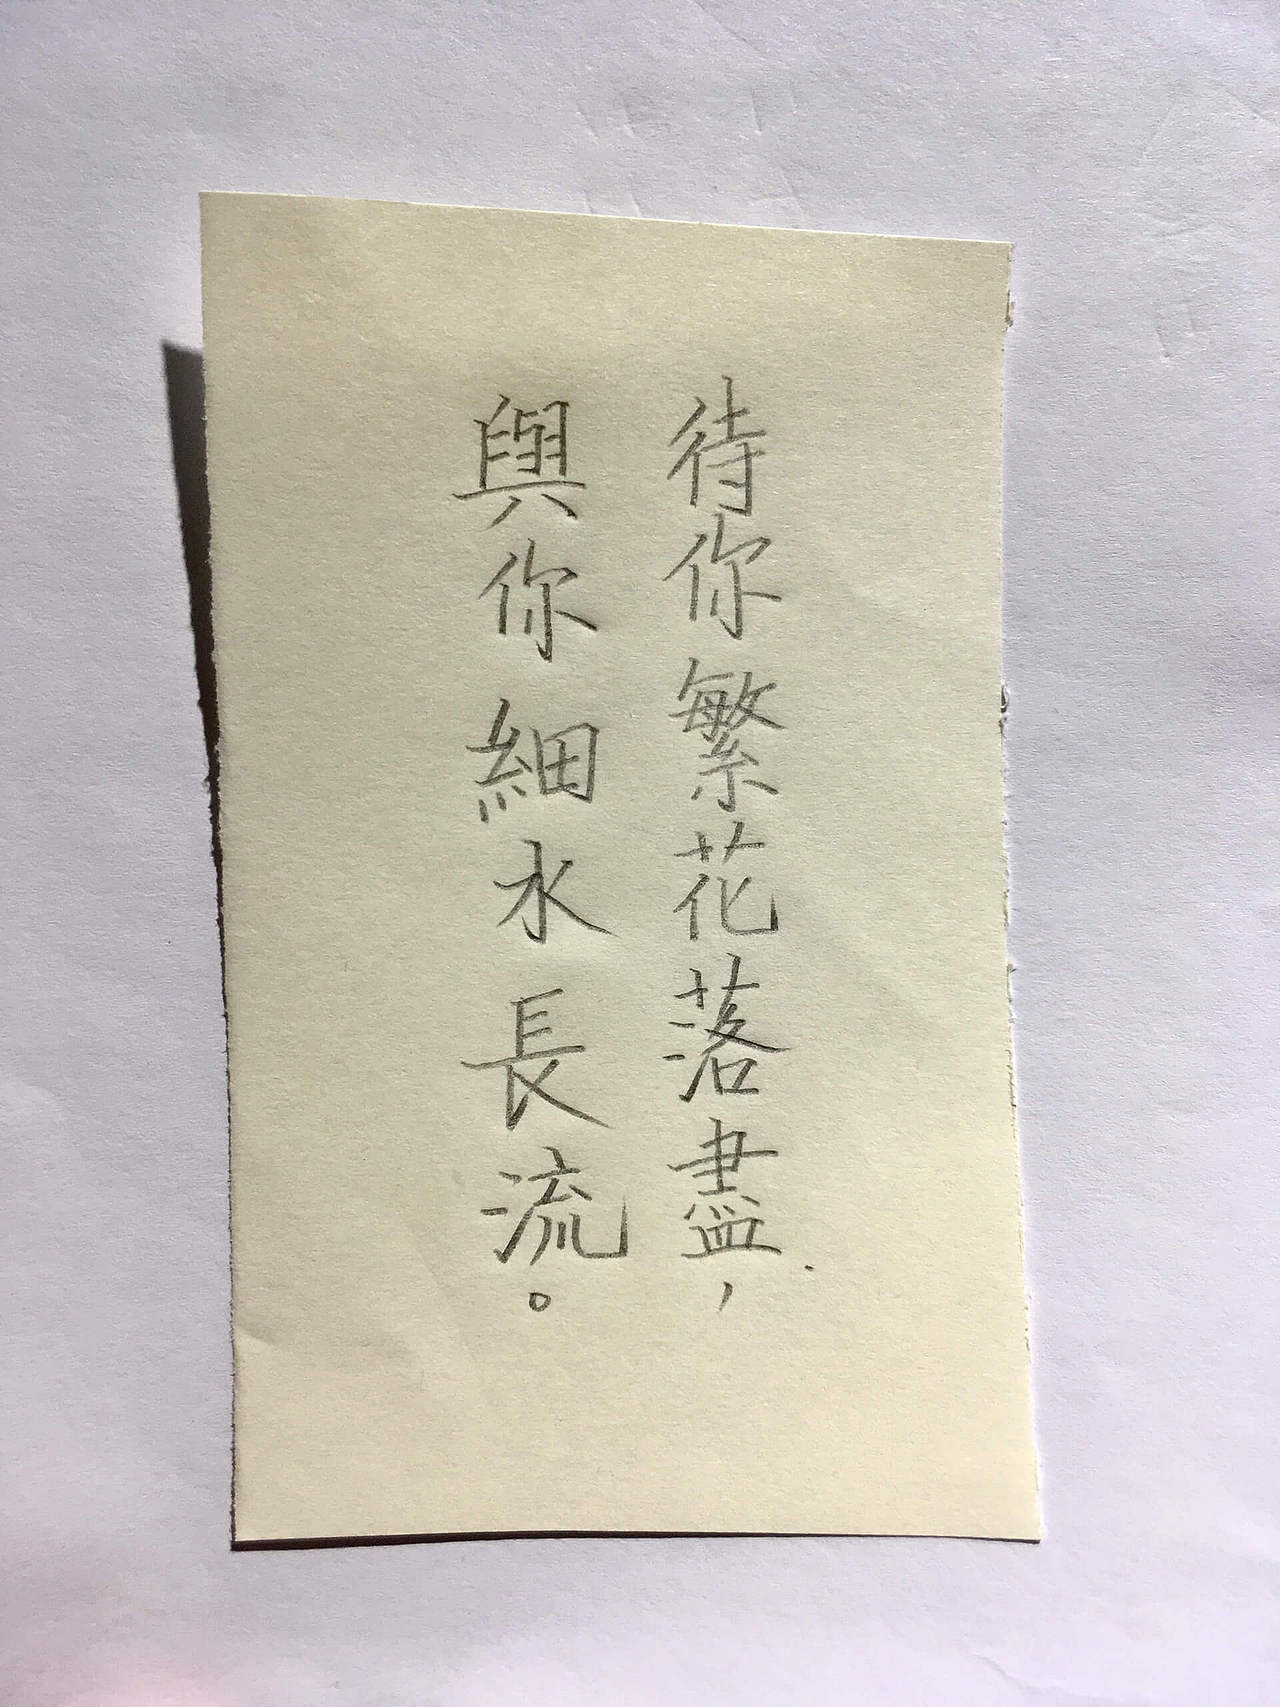 待你繁花落盡，
與你細水長流。